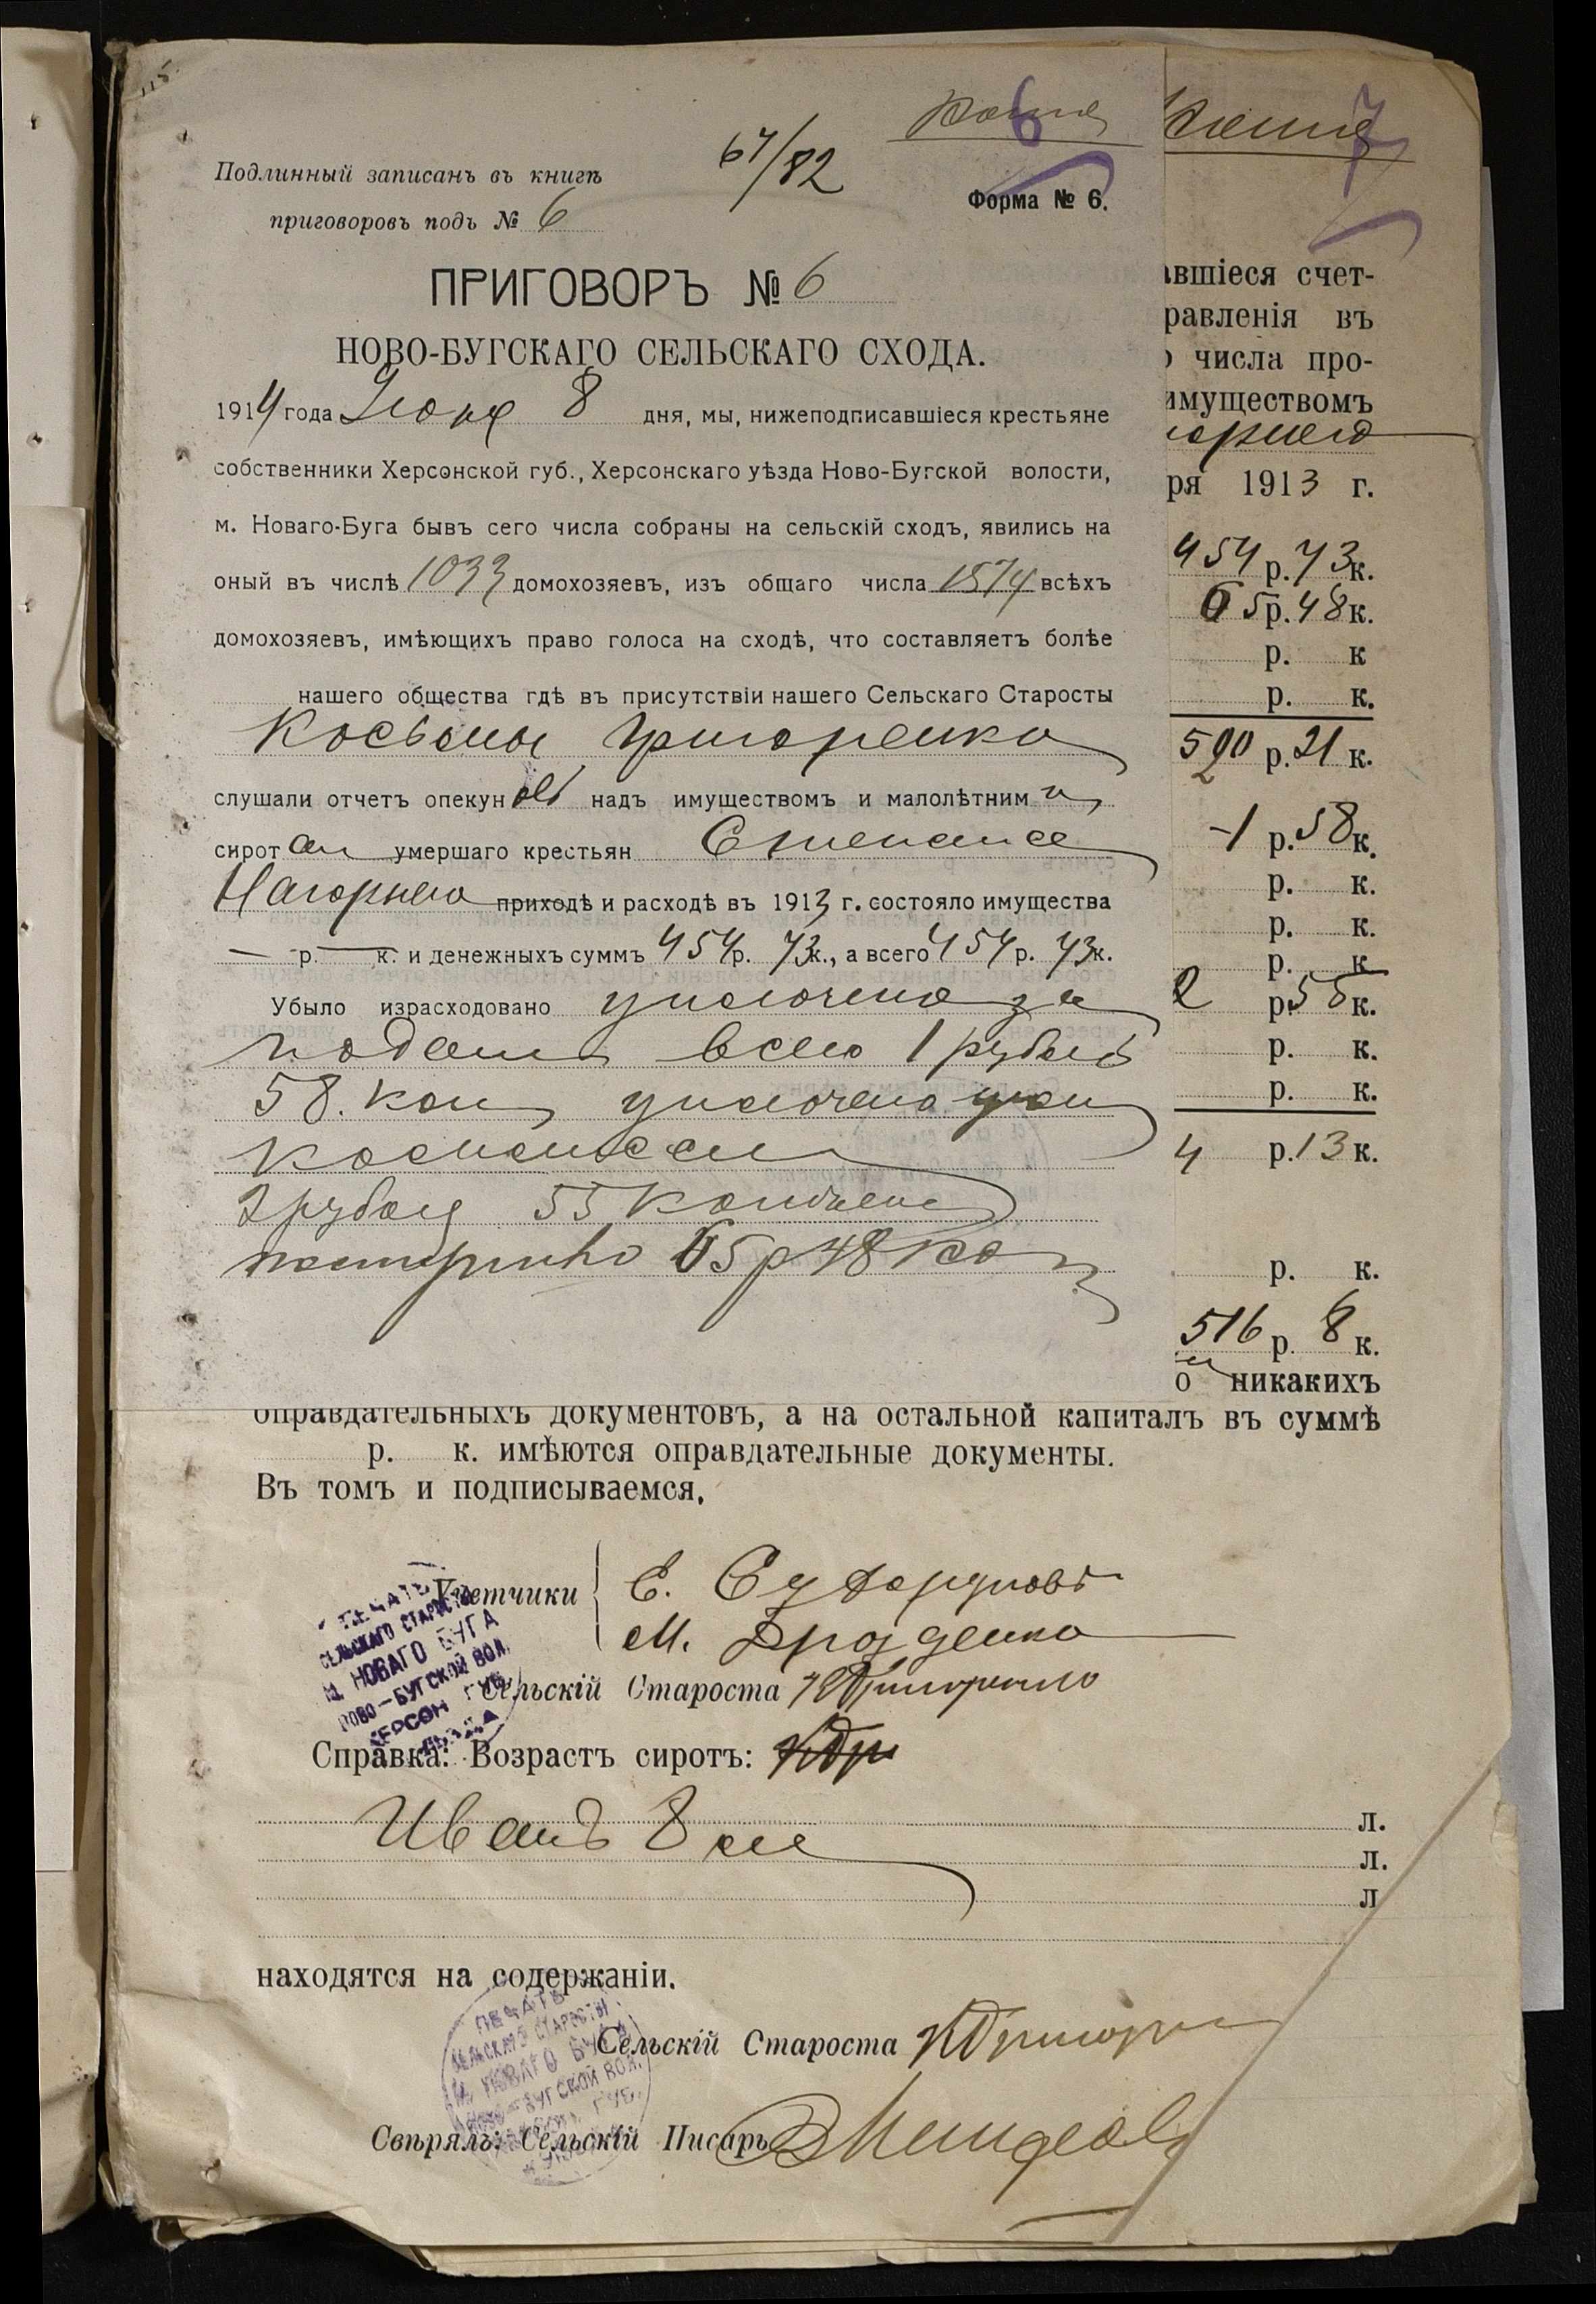 Копія
6
67/82
Подлинный записанъ въ книгѣ
приговоровъ подъ № 6
Форма № 6.
ПРИГОВОРЪ № 6
НОВО-БУГСКАГО СЕЛЬСКАГО СХОДА.
1914 года Іюня 8 дня, мы, нижеподписавшіеся крестьяне
собственники Херсонской губ., Херсонскаго уѣзда Ново-Бугской волости,
м. Новаго-Буга бывъ сего числа собраны на сельскій сходъ, явились на
оный въ числѣ 1033 домохозяевъ, изъ общаго числа 1574 всѣхъ
домохозяевъ, имѣющихъ право голоса на сходѣ, что составляетъ болѣе
нашего общества гдѣ въ присутствіи нашего Сельскаго Старосты
Косьмы Григоренко
слушали отчетъ опекун надъ имуществомъ и малолѣтним и
сирот ам умершаго крестьян Степана
Нагорнего приходѣ и расходѣ въ 1913 г. состояло имущества
— р. — к. и денежныхъ суммъ 454 р. 73 к., а всего 454 р. 73 к.
Убыло израсходовано уплочено за
подат всего 1 рубль
58. коп, уплочено
2 рубля 55 копѣек
65 р 48 ко
7
вшіеся счет-
равленія въ
числа про-
имуществомъ
ря 1913 г.
454 р. 73 к.
65 р. 48 к.
р. к
р. к.
520 р. 21 к.
1 р. 58 к.
р. к.
р. к.
р. к
2 р. 55 к.
р. к.
р. к.
4 р. 13 к.
р. к.
516 р. 8 к.
о никакихъ
оправдательныхъ документовъ, а на остальной капиталъ въ суммѣ
р. к. имѣются оправдательные документы.
Въ томъ и подписываемся.
Учетчики
Е.
М.
Сельскій Староста К Григоренко
ПЕЧАТЬ
СЕЛЬСКАГО СТАРОСТЫ
М. НОВАГО БУГА
НОВО-БУГСКОЙ ВОЛ.
ХЕРСОН. ГУБ.
Справка: Возрастъ сиротъ:
л.
Иванъ 8 ле
л.
л
находятся на содержаніи.
Сельскій Староста К Григоре
Свѣрялъ: Сельскій Писарь
ПЕЧАТЬ
СЕЛЬСКАГО СТАРОСТЫ
М. НОВАГО БУГА
НОВО-БУГСКОЙ ВОЛ.